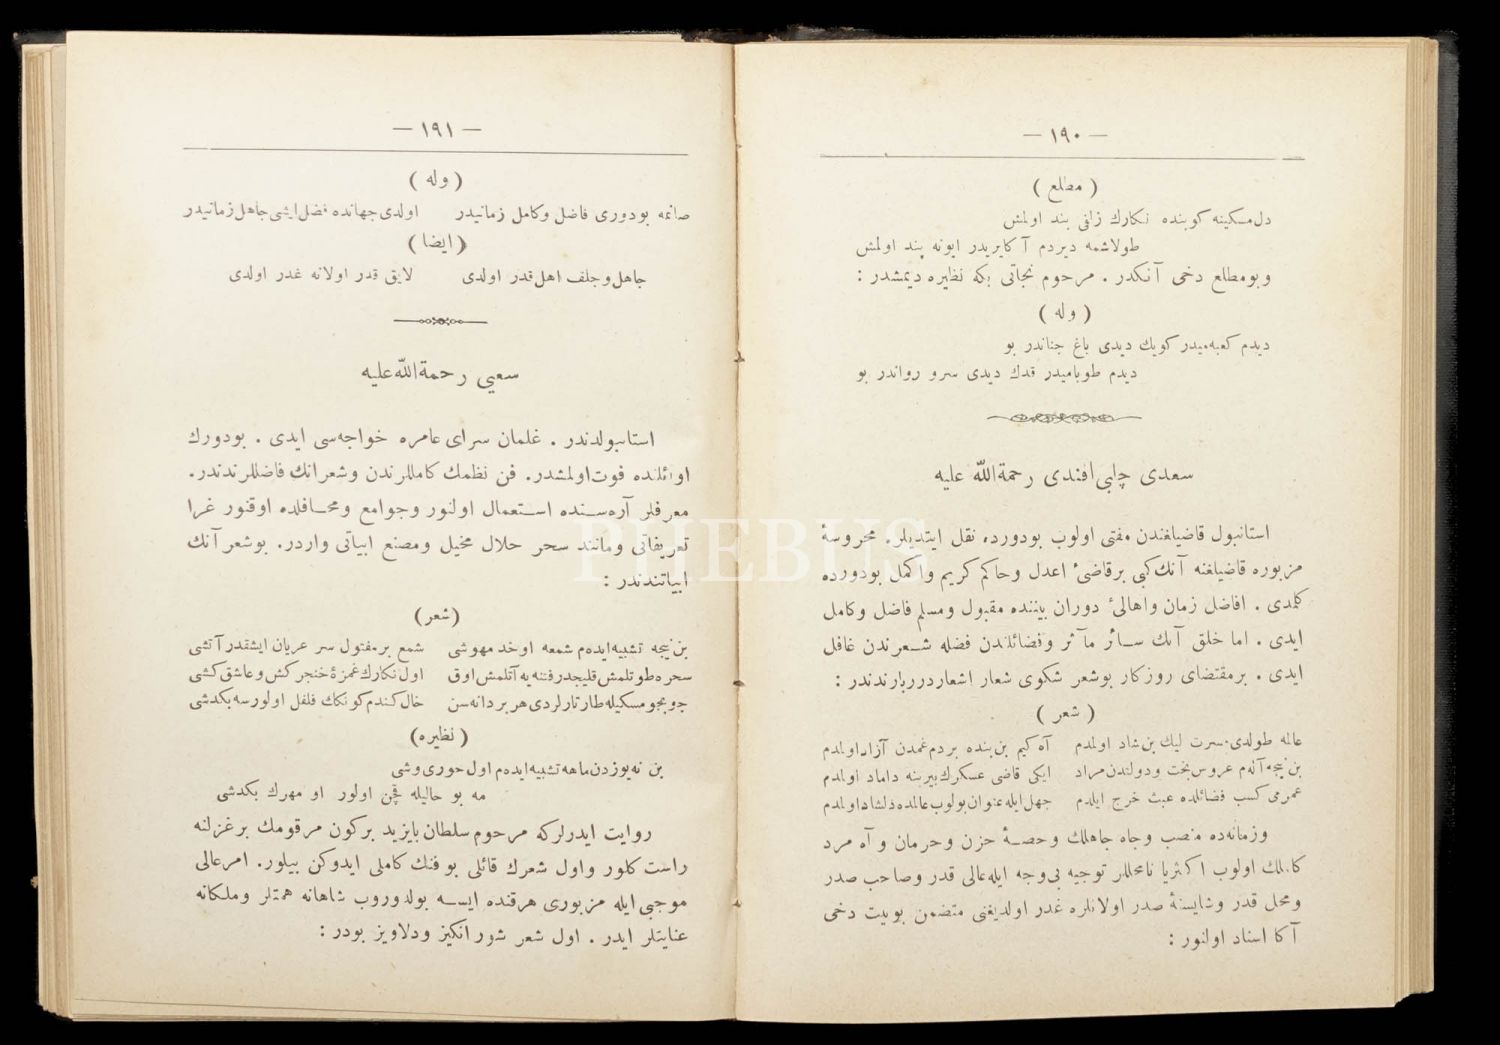 — ١٩٠ —
( مطلع )
دل مسكينه كوبنده نكارك زلفى بند اولمش
طولاشمه ديردم آكايريدر ايونه پند اولمش
وبو مطلع دخى آنكدر . مرحوم نجاتى بكه نظيره ديمشدر :
( وله )
ديدم كعبه ميدر كويك ديدى باغ جناندر بو
ديدم طوباميدر قدك ديدى سرو رواندر بو
سعدى چلبى افندى رحمة الله عليه
استانبول قاضيلغندن مفتى اولوب بودورده نقل ايتديلر. محروسهٔ
مزبوره قاضيلغنه آنك كبى برقاضئ اعدل وحاكم كريم واكمل بودورده
كلمدى . افاضل زمان واهالئ دوران بيننده مقبول ومسلم فاضل وكامل
ايدى . اما خلق آنك سائر مآثر وفضائلندن فضله شعرندن غافل
ايدى . برمقتضاى روزكار بوشعر شكوى شعار اشعار درربارندندر :
( شعر )
عالمه طولدى مسرت ليك بن شاد اولمدم آه كيم بن بنده بردم غمدن آزاد اولمدم
بن نيچه آنه‌م عروس بخت ودولتدن مراد ايكى قاضى عسكرك بيرينه داماد اولمدم
عمرمى كسب فضائلده عبث خرج ايلدم جهل ايله عنوان بولوب عالمده دلشاد اولمدم
وزمانه‌ده منصب وجاه جاهلك وحصهٔ حزن وحرمان وآه مرد
كاملك اولوب اكثريا نامحللر توجيه بى وجه ايله عالى قدر وصاحب صدر
ومحل قدر وشايستهٔ صدر اولانلره غدر اولديغنى متضمن بو بيت دخى
آكا اسناد اولنور :
— ١٩١ —
( وله )
صانمه بودورى فاضل وكامل زمانيدر اولدى جهانده فضل ايشى جاهل زمانيدر
( ايضا )
جاهل وجلف اهل قدر اولدى لايق قدر اولانه غدر اولدى
سعيى رحمة الله عليه
استانبولدندر . غلمان سراى عامره خواجه‌سى ايدى . بودورك
اوائلنده فوت اولمشدر. فن نظمك كامللرندن وشعرانك فاضللرندندر.
معرفلر آره‌سنده استعمال اولنور وجوامع ومحافلده اوقنور غرا
تعريفاتى ومانند سحر حلال مخيل ومصنع ابياتى واردر. بوشعر آنك
ابياتندندر :
(شعر)
بن نيجه تشبيه ايده‌م شمعه اوخد مهوشى شمع برمفتول سر عريان ايشقدر آتشى
سحره طوتلمش قليجدر فتنه يه آتلمش اوق اول نكارك غمزهٔ خنجركش وعاشق كشى
جوبجو مسكيله طارتارلردى هر بردانه سن خال كندم كونكك فلفل اولورسه بكدشى
( نظيره )
بن نه يوزدن ماهه تشبيه ايده‌م اول حورى وشى
مه بو حاليله قچن اولور او مهرك بكدشى
روايت ايدرلركه مرحوم سلطان بايزيد بركون مرقومك برغزلنه
راست كلور واول شعرك قائلى بوفنك كاملى ايدوكن بيلور. امرعالى
موجبى ايله مزبورى هرقنده ايسه بولدوروب شاهانه همتلر وملكانه
عنايتلر ايدر . اول شعر شور انكيز ودلاويز بودر :
PHEBUS